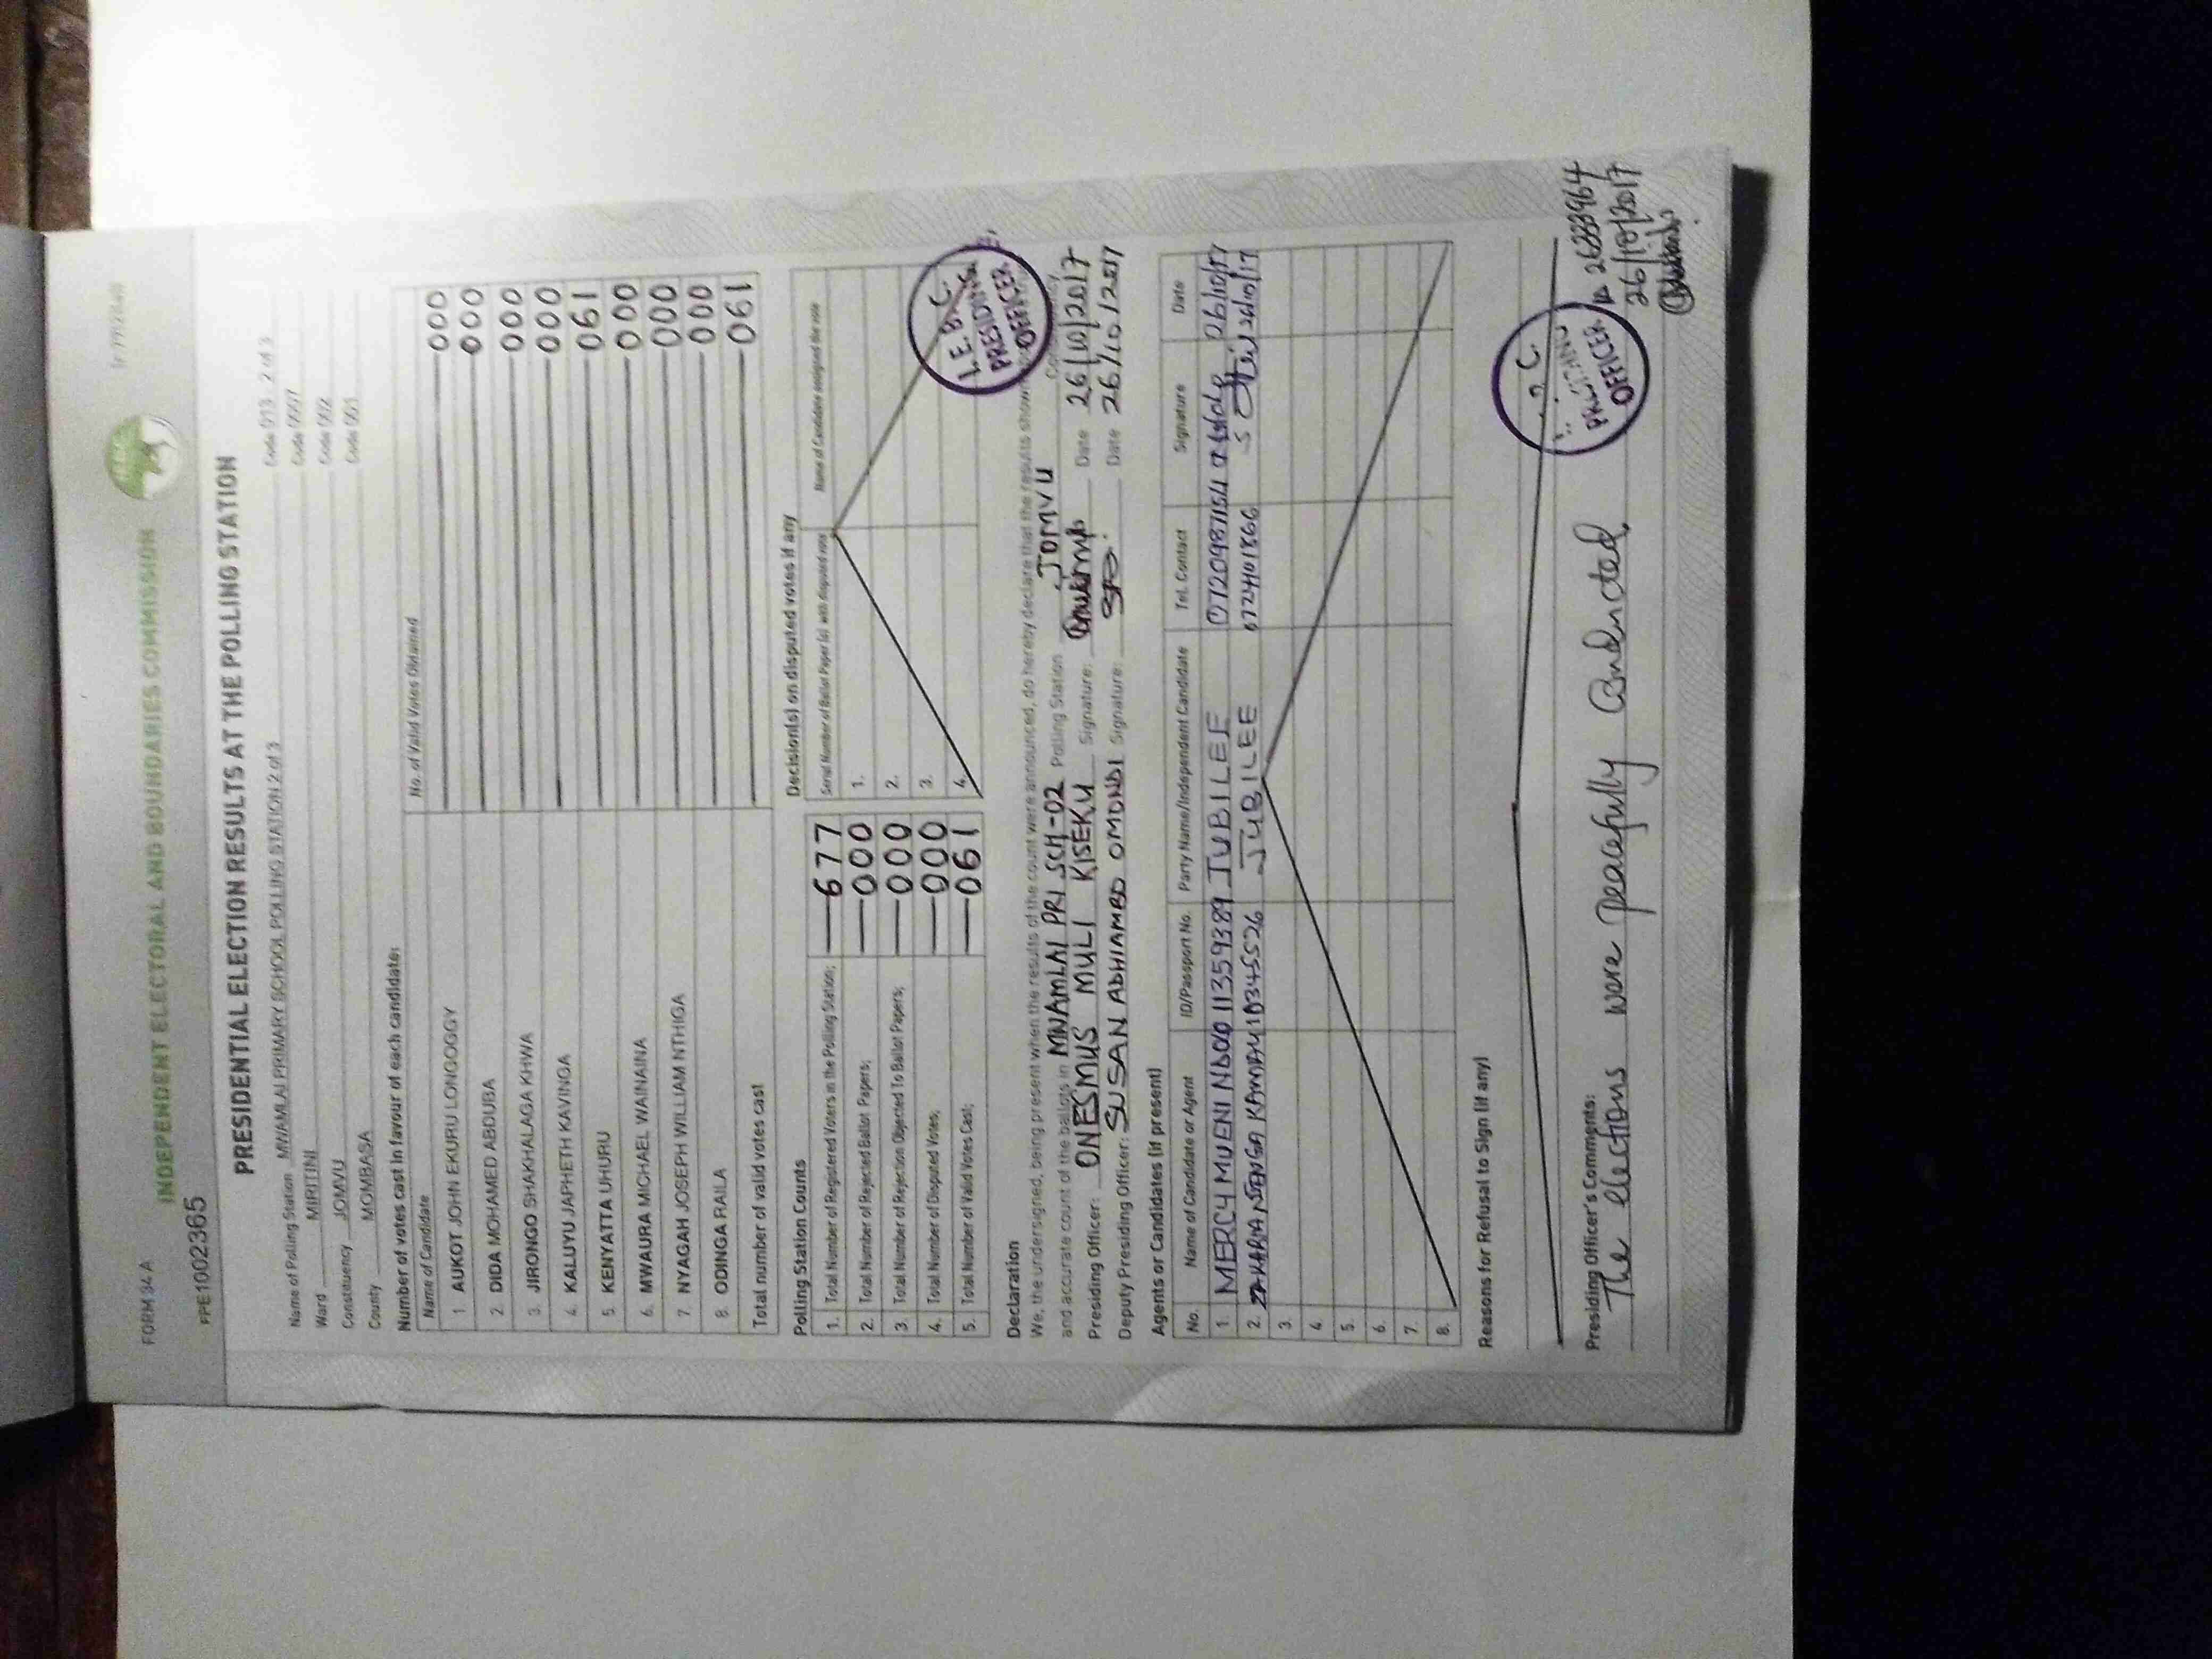 FORM 34 A
INDEPENDENT ELECTORAL AND BOUNDARIES COMMISSION
IEBC
FPE1002365
PRESIDENTIAL ELECTION RESULTS AT THE POLLING STATION
Name of Polling Station MWAMLAI PRIMARY SCHOOL POLLING STATION 2 of 3 Code 013 2 of 3
Ward MIRITINI Code 0007
Constituency JOMVU Code 002
County MOMBASA Code 001
Number of votes cast in favour of each candidate:
Name of Candidate No. of Valid Votes Obtained
1 AUKOT JOHN EKURU LONGOGGY 000
2. DIDA MOHAMED ABDUBA 000
3. JIRONGO SHAKHALAGA KHWA 000
4. KALUYU JAPHETH KAVINGA 000
5 KENYATTA UHURU 061
6. MWAURA MICHAEL WAINAINA 000
7. NYAGAH JOSEPH WILLIAM NTHIGA 000
8. ODINGA RAILA 000
Total number of valid votes cast 061
Polling Station Counts
1. Total Number of Registered Voters in the Polling Station; 677
2. Total Number of Rejected Ballot Papers; 000
3. Total Number of Rejection Objected To Ballot Papers; 000
4. Total Number of Disputed Votes; 000
5. Total Number of Valid Votes Cast; 061
Decision(s) on disputed votes if any
Serial Number of Ballot Paper (s) with disputed vote Name of Candidate assigned the vote
1.
2.
3.
4.
I.E.B.C.
PRESIDING
OFFICER
Declaration
We, the undersigned, being present when the results of the count were announced, do hereby declare that the results show
and accurate count of the ballots in MWAMLAI PRI SCH-02 Polling Station JOMVU Constituency
Presiding Officer: ONESMUS MULI KISEKU Signature: Date 26/10/2017
Deputy Presiding Officer: SUSAN ADHIAMBO OMONDI Signature: Date 26/10/2017
Agents or Candidates (if present)
No. Name of Candidate or Agent ID/Passport No. Party Name/Independent Candidate Tel. Contact Signature Date
1. MERCY MUENI NDOO 11359389 JUBILEE 0720987154 26/10/17
2. NJENGA 10345526 JUBILEE 0724401866 26/10/17
3.
4.
5.
6.
7.
8.
Reasons for Refusal to Sign (if any)
PRESIDING
OFFICER
Presiding Officer's Comments:
The elections were peacefully conducted.
ID 26283964
26/10/2017